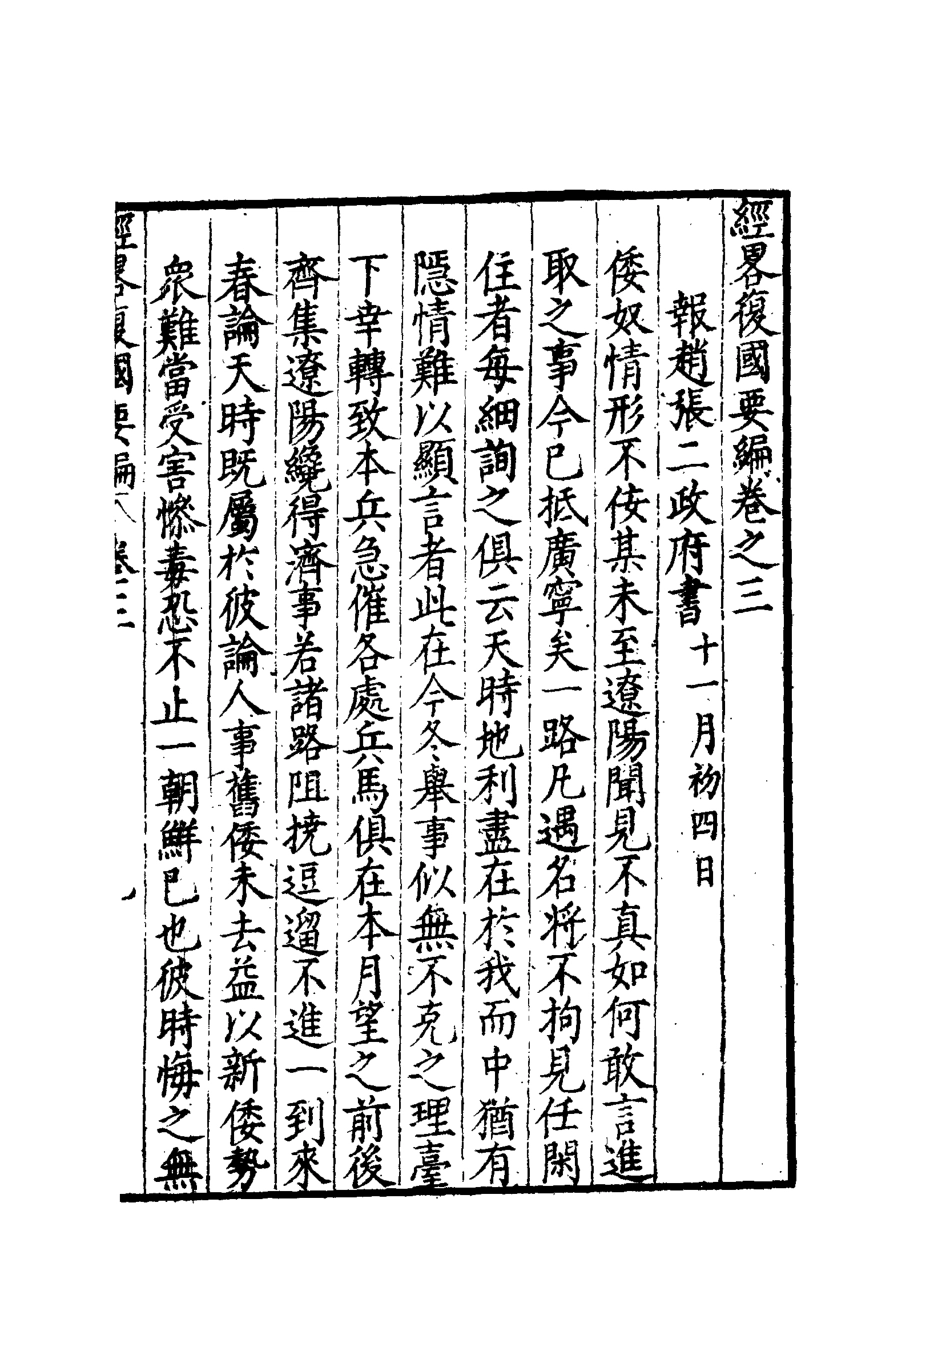 經畧復國要編卷之三
報趙張二政府書 十一月初四日
倭奴情形不侒某未至遼陽聞見不真如何敢言進
取之事今已抵廣寧矣一路凡遇名將不拘見任閑
住者每細詢之俱云天時地利盡在於我而中猶有
隱情難以顯言者此在今冬舉事似無不克之理臺
下幸轉致本兵急催各處兵馬俱在本月望之前後
齊集遼陽纔得濟事若諸路阻撓逗遛不進一到來
春論天時既屬於彼論人事舊倭未去益以新倭勢
衆難當受害慘毒恐不止一朝鮮已也彼時悔之無
經畧復國要編 卷三